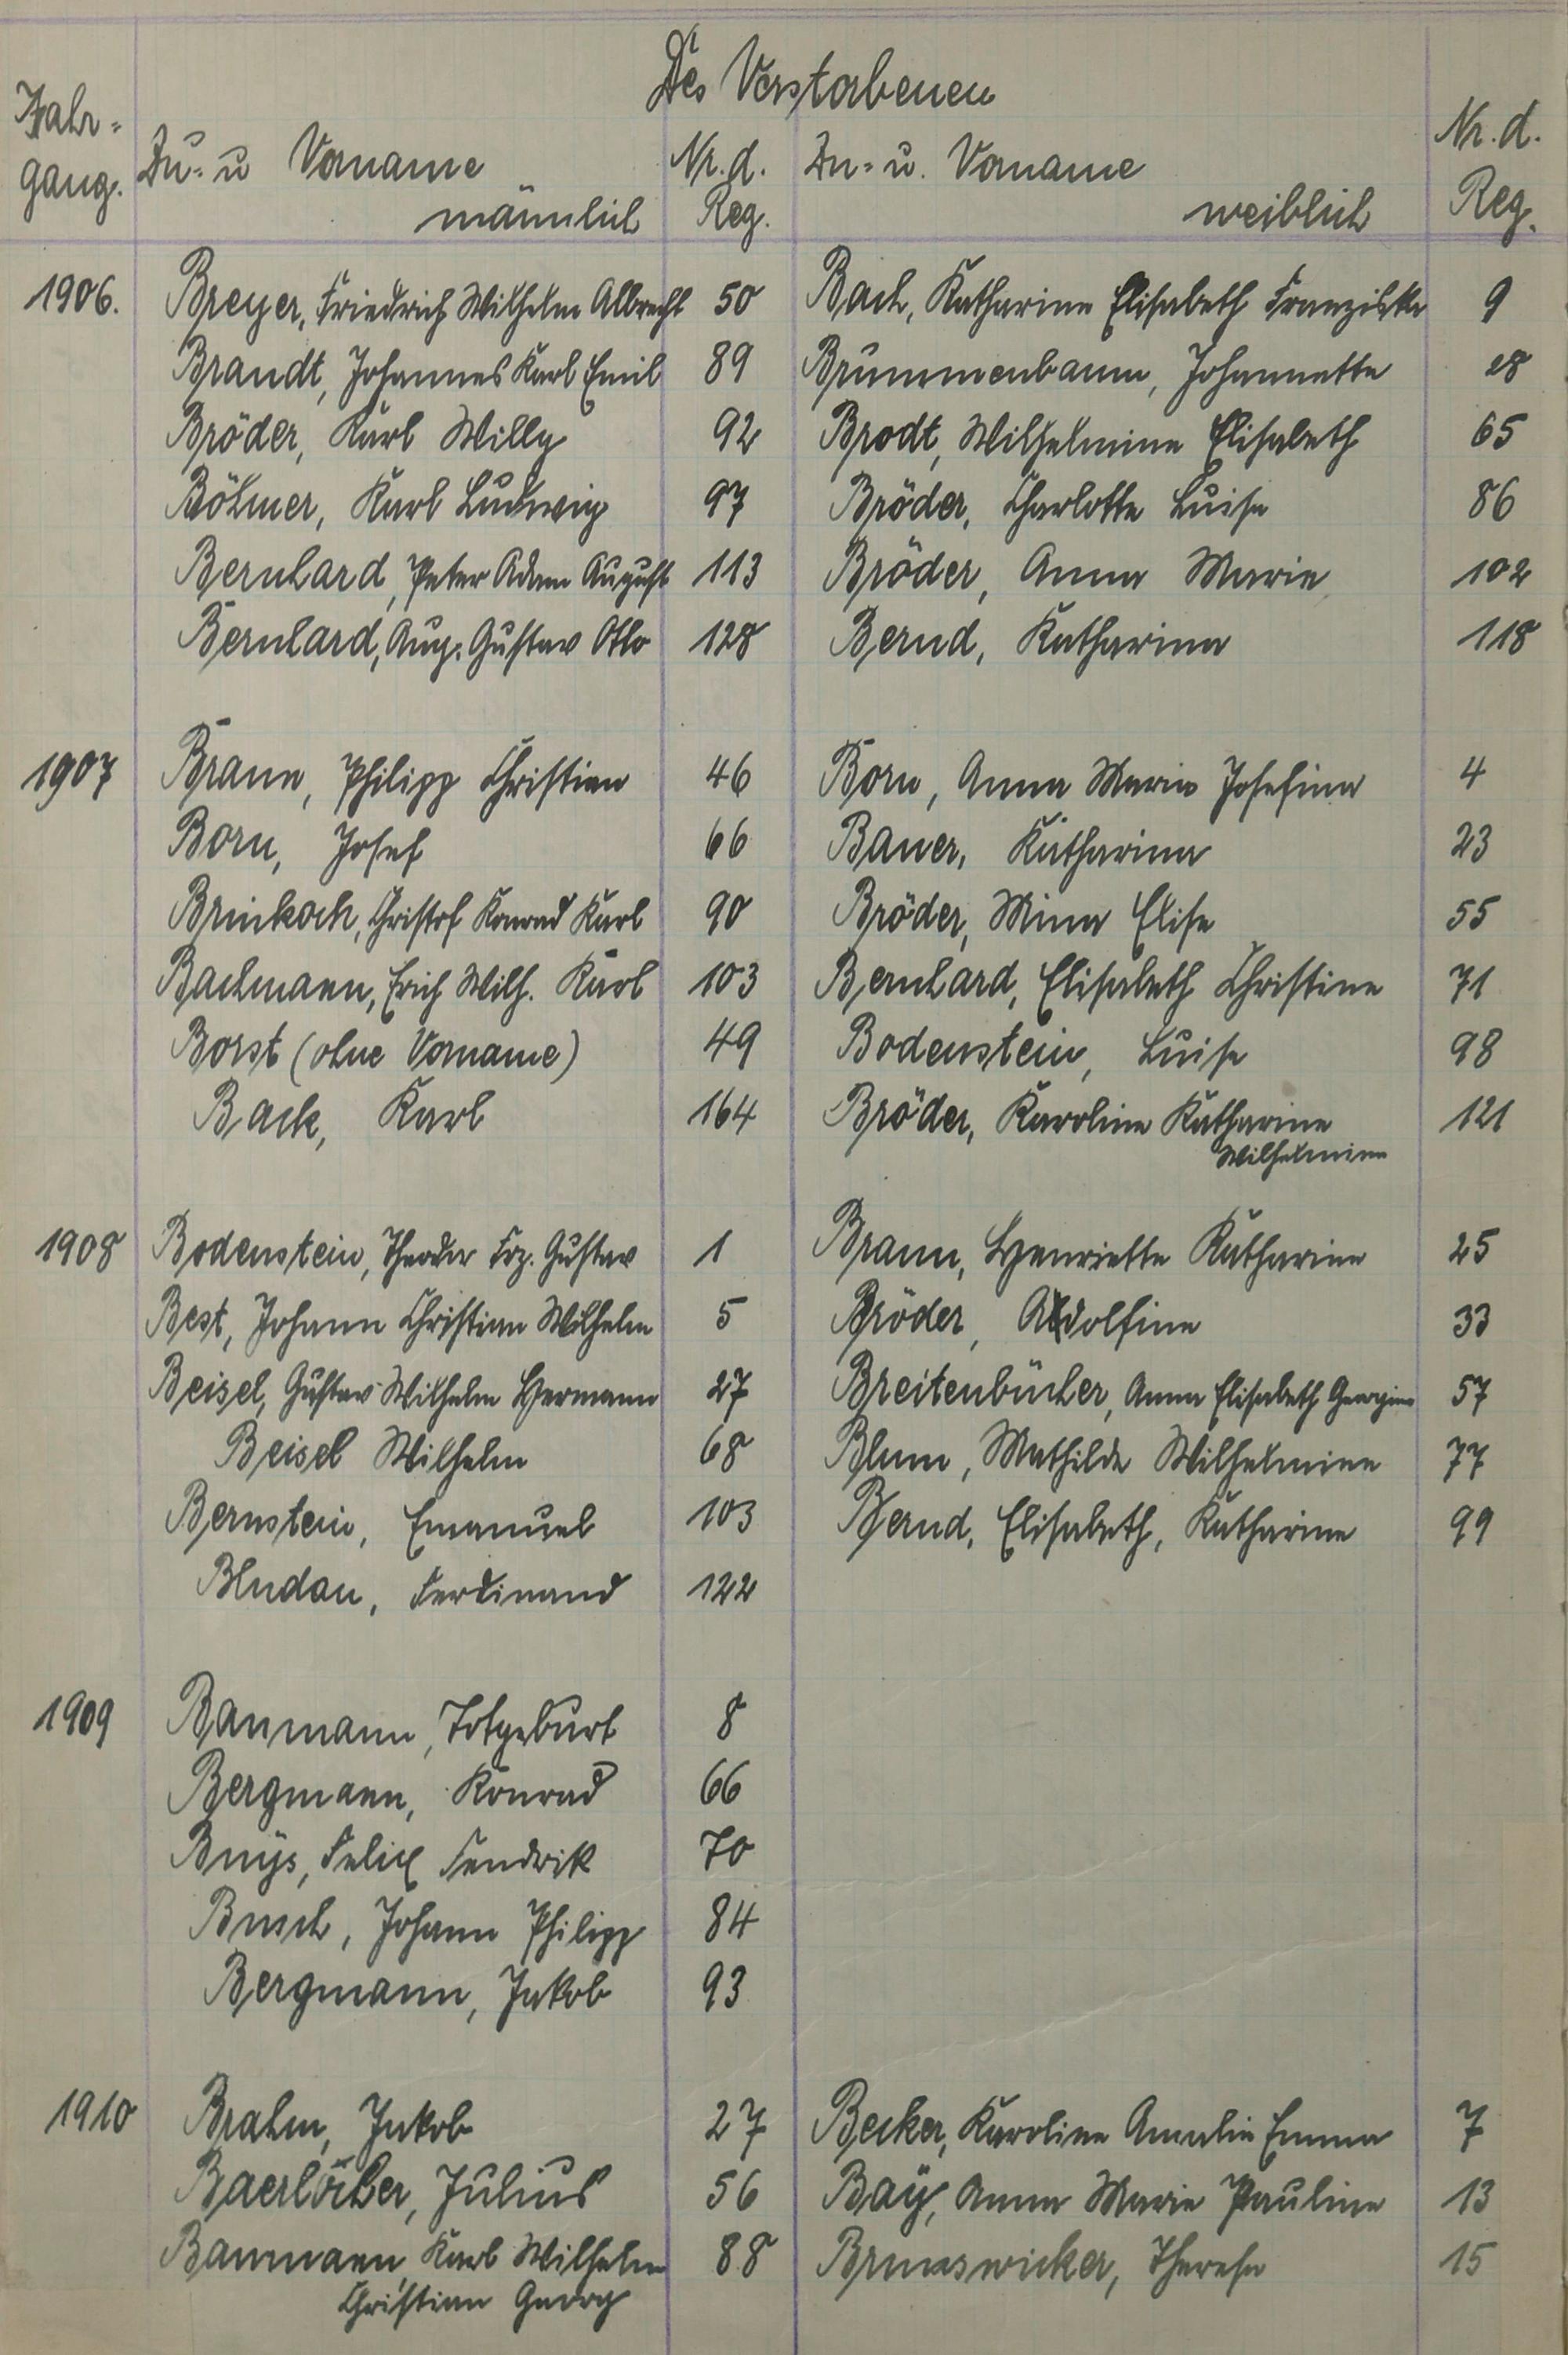 Des Verstorbenen
Jahr-
gang.
Zu- u Vorname
männlich
Nr. d.
Reg.
Zu- u. Vorname
weiblich
Nr. d.
Reg.
1906. Breyer, Friedrich Wilhelm Albrecht 50 Bach, Katharine Elisabeth Franziska 9
Brandt, Johannes Karl Emil 89 Brummenbaum, Johannette 28
Bröder, Karl Willy 92 Brodt, Wilhelmine Elisabeth 65
Böhmer, Karl Ludwig 97 Bröder, Charlotte Luise 86
Bernhard, Peter Adam August 113 Bröder, Anna Maria 102
Bernhard, Aug. Gustav Otto 128 Bernd, Katharina 118
1907 Braun, Philipp Christian 46 Born, Anna Maria Josefina 4
Born, Josef 66 Bauer, Katharina 23
Brinkoch, Christof Konrad Karl 90 Bröder, Mina Elise 55
Bachmann, Erich Wilh. Karl 103 Bernhard, Elisabeth Christine 71
Borst (ohne Vorname) 49 Bodenstein, Luise 98
Back, Karl 164 Bröder, Karoline Katharine 121
Wilhelmine
1908 Bodenstein, Theodor Frz. Gustav 1 Braun, Henriette Katharine 25
Best, Johann Christian Wilhelm 5 Bröder, Adolfine 33
Beisel, Gustav Wilhelm Hermann 27 Breitenbücher, Anna Elisabeth Georgine 57
Beisel Wilhelm 68 Blum, Mathilde Wilhelmine 77
Bernstein, Emanuel 103 Bernd, Elisabeth, Katharine 99
Bludau, Ferdinand 122
1909 Baumann, Totgeburt 8
Bergmann, Konrad 66
Buijs, Felix Fendrik 70
Busch, Johann Philipp 84
Bergmann, Jakob 93
1910 Brahm, Jakob 27 Becker, Karoline Amalie Emma 7
Baerlöcher, Julius 56 Baÿ, Anna Marie Pauline 13
Baumann, Karl Wilhelm 88 Brunswicker, Therese 15
Christian Georg